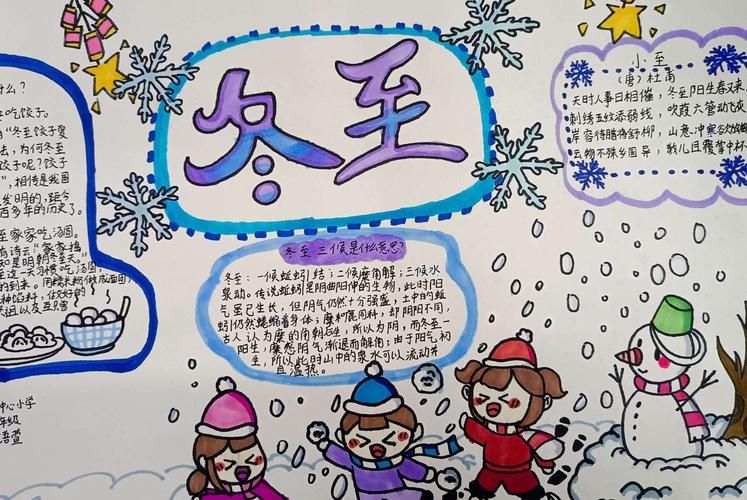 冬至
什么?
吃饺子。
"冬至饺子
法,为何冬至
饺子呢?饺子
",相传是我国
发明的,距今
百多年的历史了。
至家家吃汤圆。
有诗云"家家捣
知是明朝冬至天。"
至这一天习惯吃汤圆,
的到来。用糯米粉做成面团,
种馅料,做好的
以及互
中心小学
年级
语萱
冬至三候是什么意思?
冬至:一候蚯蚓结;二候麋角解;三候水
泉动。传说蚯蚓是阴曲阳伸的生物,此时阳
气虽已生长,但阴气仍然十分强盛,土中的蚯
蚓仍然蜷缩着身体;麋和鹿同科,却阴阳不同,
古人认为麋的角朝后生,所以为阴,而冬至一
阳生,麋感阴气渐退而解角;由于阳气初
生,所以此时山中的泉水可以流动并
且温热。
小至
(唐)杜甫
天时人事日相催,冬至阳生春又来。
刺绣五纹添弱线,吹葭六管动飞灰
岸容待腊将舒柳,山意冲寒欲放
云物不殊乡国异,教儿且覆掌中杯